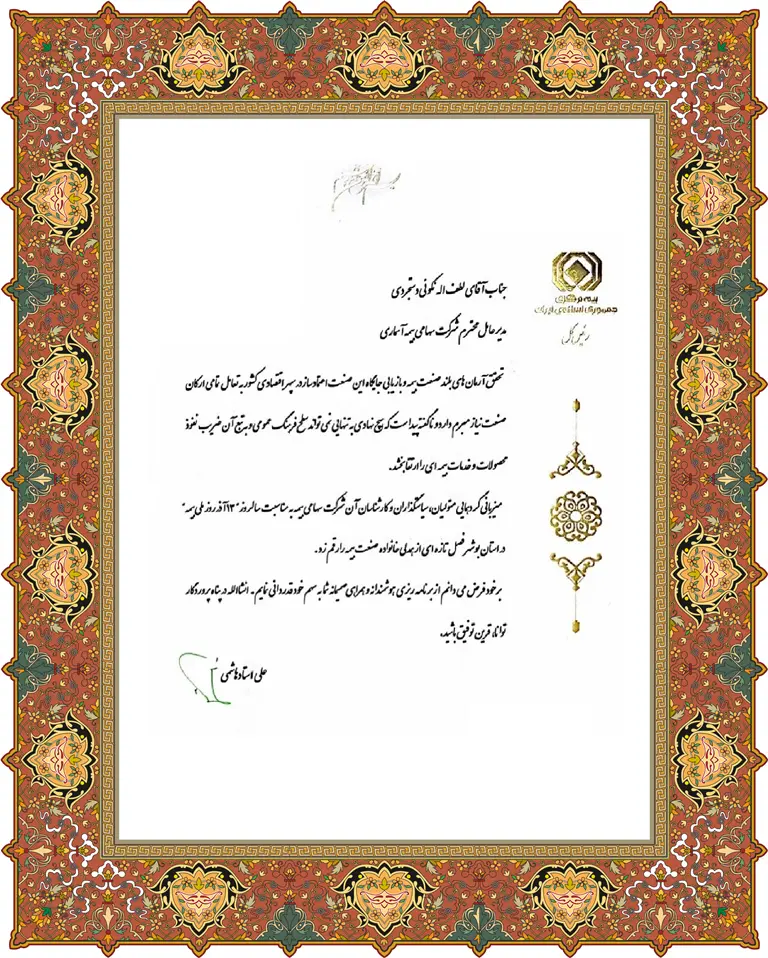 بیمه مرکزی
جمهوری اسلامی ایران
رئیس کل
جناب آقای لطف اله نکوئی دستجردی
مدیرعامل محترم شرکت سهامی بیمه آسماری
تحقق آرمان های بلند صنعت بیمه و بازیابی جایگاه این صنعت اعتمادساز در سپهر اقتصادی کشور به تعامل تمامی ارکان
صنعت نیاز مبرم دارد و ناگفته پیداست که هیچ نهادی به تنهایی نمی تواند سطح فرهنگ عمومی و به تبع آن ضریب نفوذ
محصولات و خدمات بیمه ای را ارتقا بخشد.
میزبانی گردهمایی متولیان، سیاستگذاران و کارشناسان آن شرکت سهامی بیمه به مناسبت سالروز "۱۳ آذر روز ملی بیمه"
در استان بوشهر فصل تازه ای از همدلی خانواده صنعت بیمه را رقم زد.
برخود فرض می دانم از برنامه ریزی هوشمندانه و همراهی صمیمانه شما به سهم خود قدردانی نمایم. انشاالله در پناه پروردگار
توانا، قرین توفیق باشید.
علی استادهاشمی